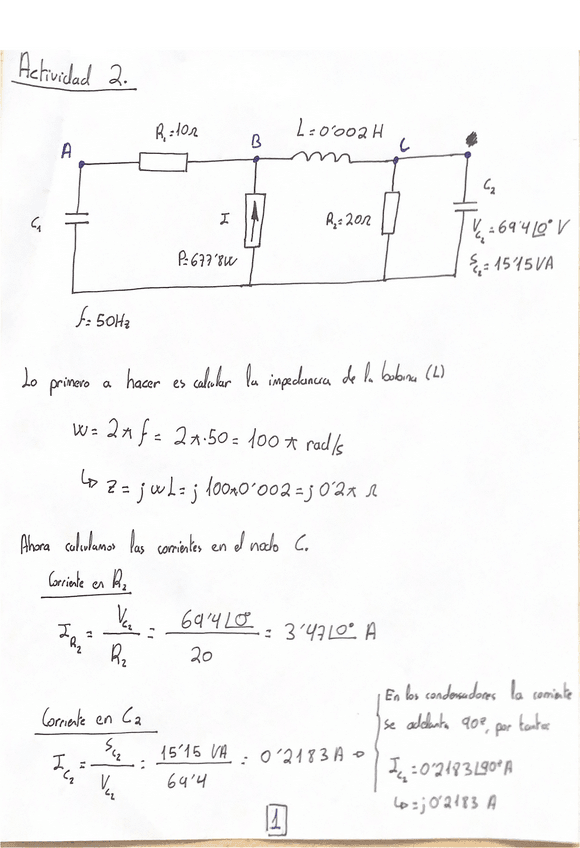 Actividad 2.
R₁=10Ω
L=0'002H
A
B
C
C₁
I
R₂=20Ω
C₂
V_C₂=69'4∠0° V
S_C₂=15'15VA
P=677'8W
f=50Hz
Lo primero a hacer es calcular la impedancia de la bobina (L)
w=2πf=2π·50=100π rad/s
↳ Z=jwL=j100π0'002=j0'2π Ω
Ahora calculamos las corrientes en el nodo C.
Corriente en R₂
I_R₂ = V_C₂ / R₂ = 69'4∠0° / 20 = 3'47∠0° A
Corriente en C₂
I_C₂ = S_C₂ / V_C₂ = 15'15 VA / 69'4 = 0'2183A →
En los condensadores la corriente
se adelanta 90º, por tanto:
I_C₂=0'2183∠90ºA
↳=j0'2183 A
1